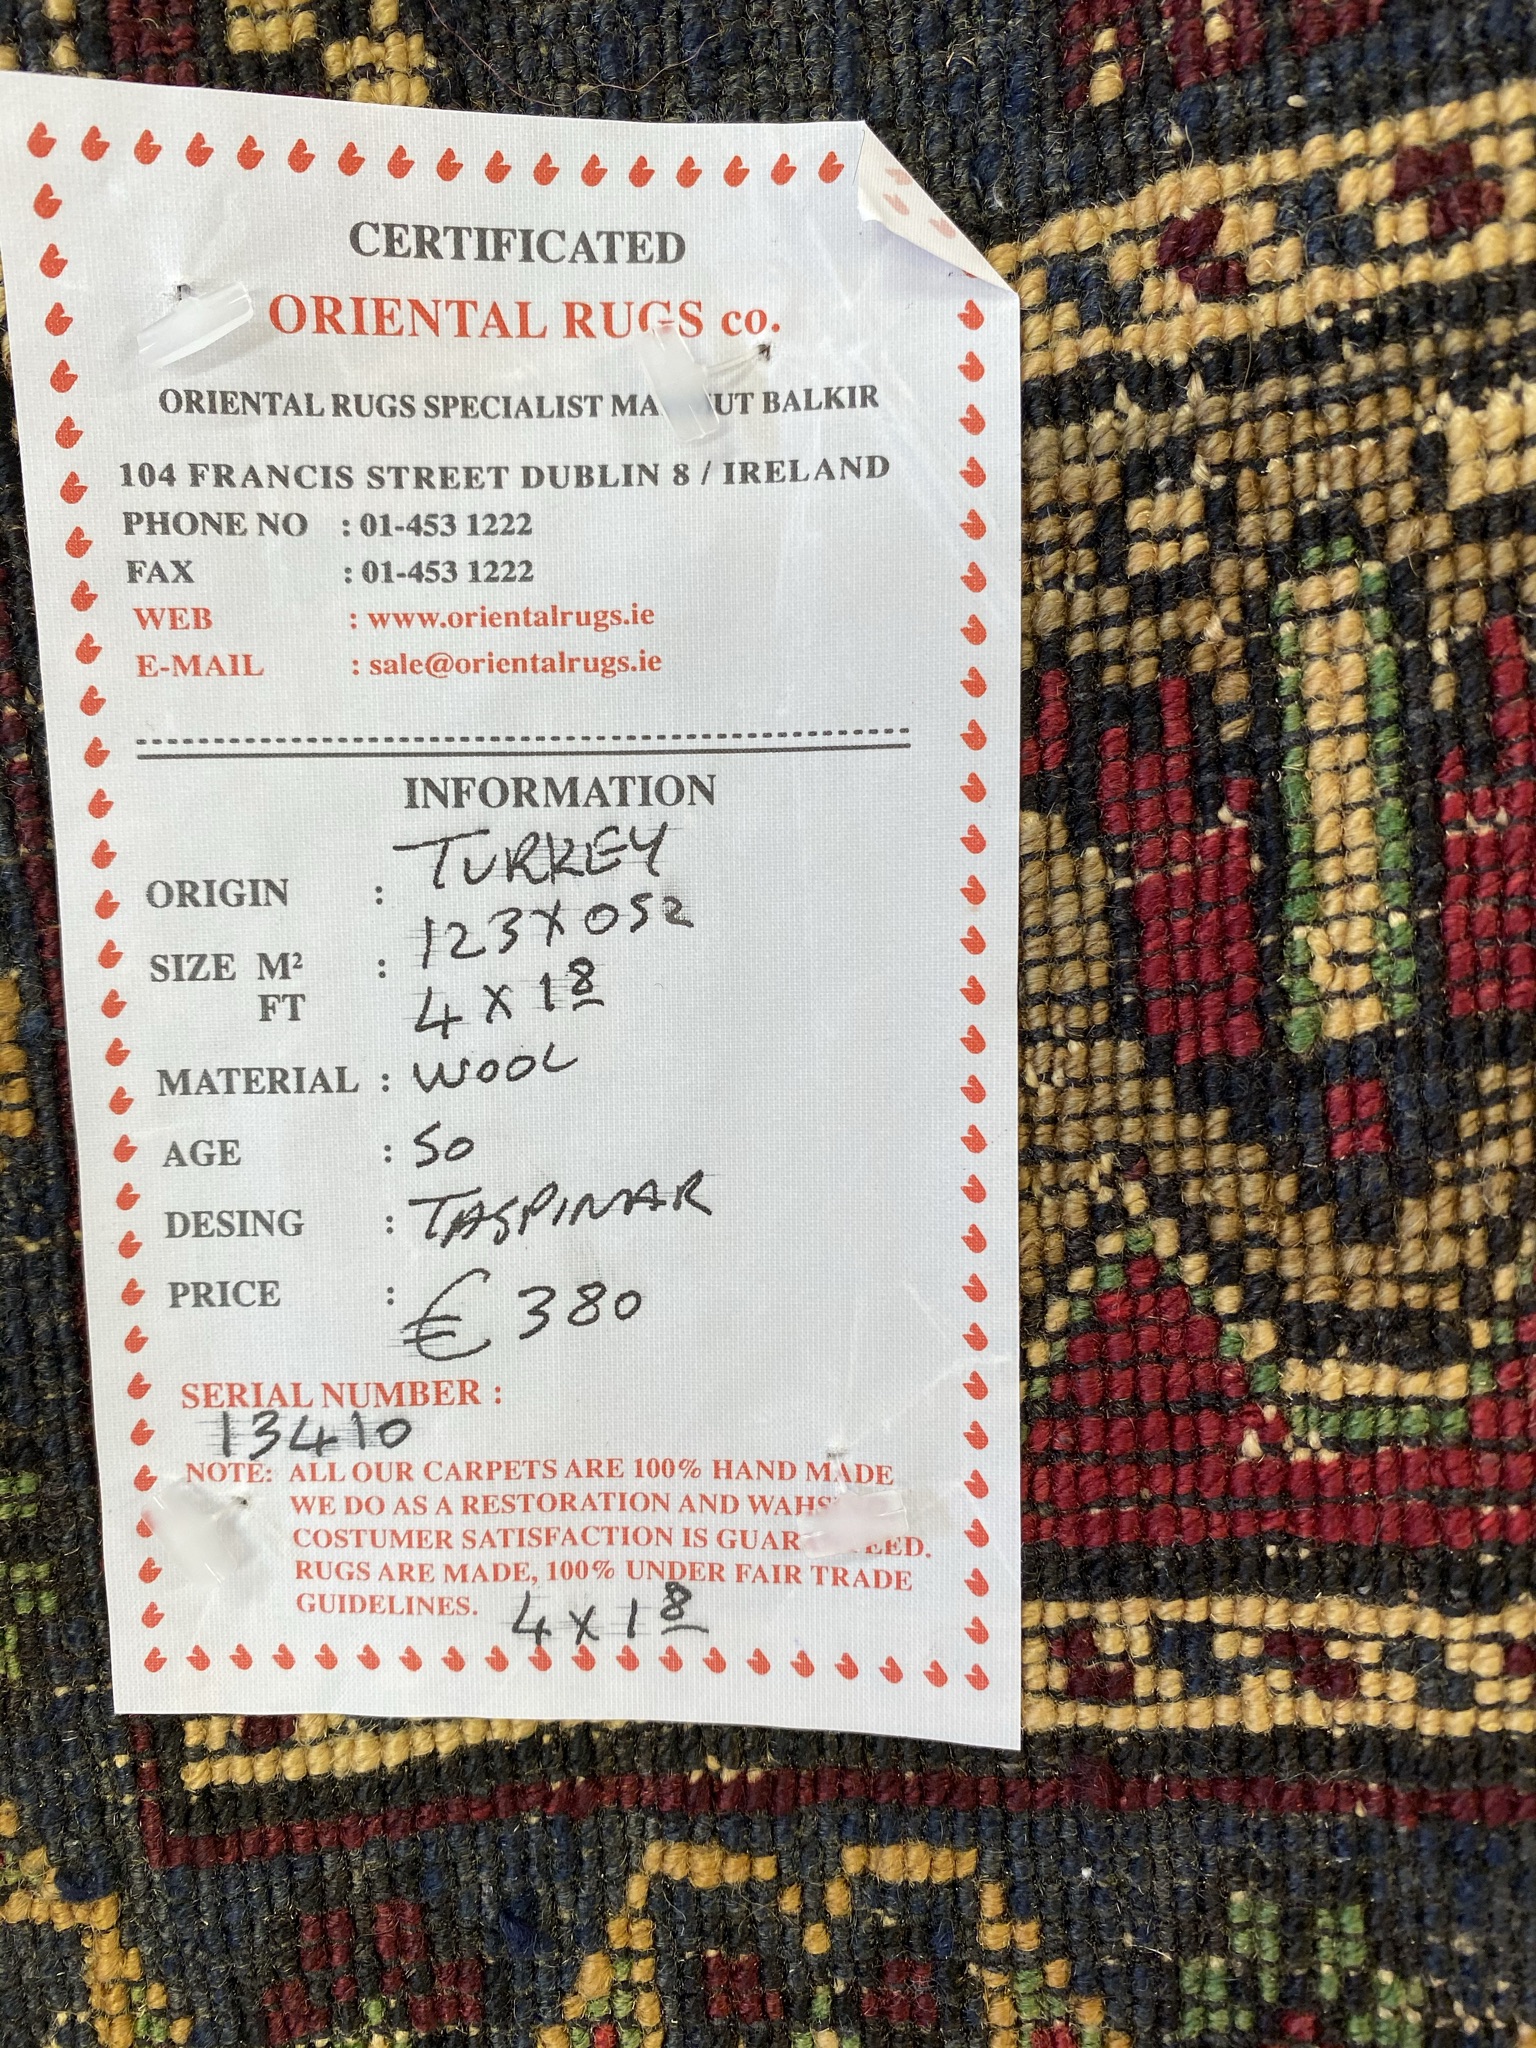 CERTIFICATED
ORIENTAL RUGS co.
ORIENTAL RUGS SPECIALIST BALKIR
104 FRANCIS STREET DUBLIN 8 / IRELAND
PHONE NO : 01-453 1222
FAX : 01-453 1222
WEB : www.orientalrugs.ie
E-MAIL : sale@orientalrugs.ie
INFORMATION
ORIGIN : TURKEY
SIZE M² : 123 X 052
FT 4 X 1 8
MATERIAL : WOOL
AGE : 50
DESING : TASPINAR
PRICE : € 380
SERIAL NUMBER :
13410
NOTE: ALL OUR CARPETS ARE 100% HAND MADE
WE DO AS A RESTORATION AND
COSTUMER SATISFACTION IS
RUGS ARE MADE, 100% UNDER FAIR TRADE
GUIDELINES.
4 X 1 8